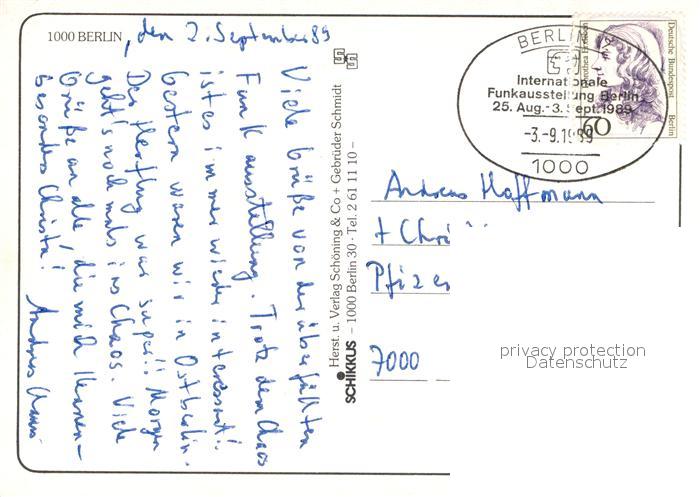 1000 BERLIN, den 2. September 89
Viele Grüße von der überfüllten
Funkausstellung. Trotz dem Chaos
ist es immer wieder interessant!
Gestern waren wir in Ostberlin.
Der Herflug war super!! Morgen
geht's nochmals ins Chaos. Viele
Grüße an alle, die mich kennen –
besonders Christa!
Andreas
Herst. u. Verlag Schöning & Co + Gebrüder Schmidt
SCHIKKUS – 1000 Berlin 30 · Tel. 2 61 11 10 –
BERLIN
Internationale
Funkausstellung Berlin
25. Aug.-3. Sept. 1989
-3.-9.1989
1000
Deutsche Bundespost Berlin
60
Andreas Hoffmann
+ Chri
Pfizer
7000
privacy protection
Datenschutz